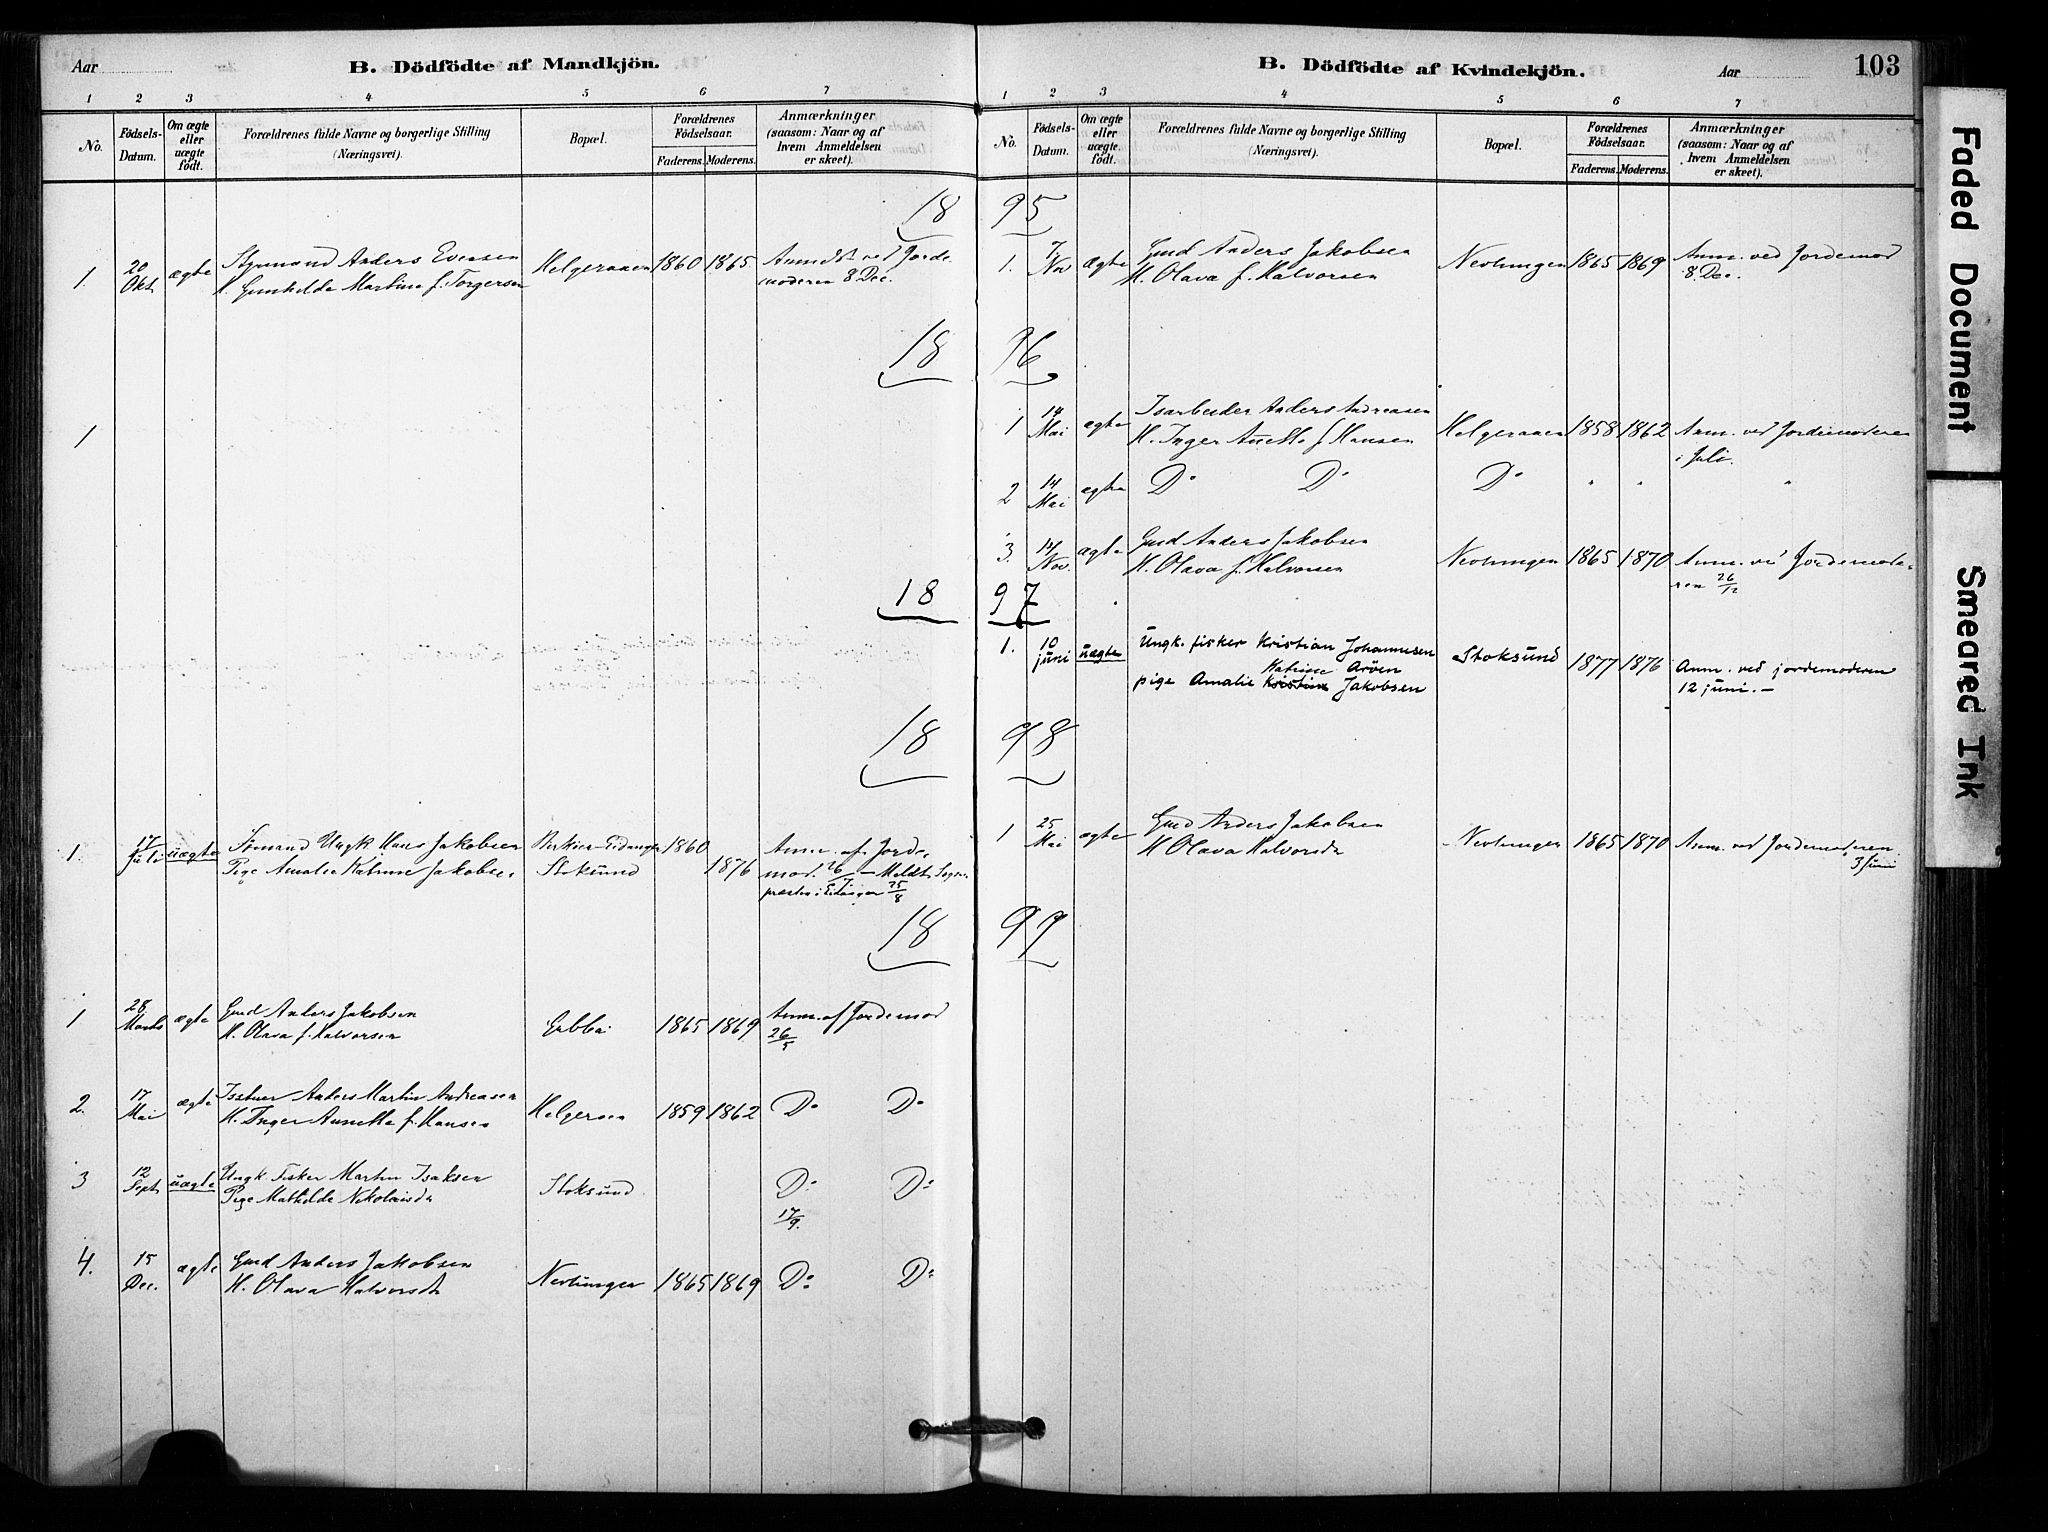 Aar
B. Dödfödte af Mandkjön.
1 2 3 4 5 6 7
No.
Födsels-Datum.
Om ægte eller uægte födt.
Forældrenes fulde Navne og borgerlige Stilling (Næringsvei).
Bopæl.
Forældrenes Födselsaar.
Faderens. Moderens.
Anmærkninger (saasom: Naar og af hvem Anmeldelsen er skeet).
18
1. 20 Okt ægte Styrmand Anders Evensen Helgeraaen 1860 1865 Anmeldt ved Jorde-
H. Gunhilde Martine f. Torgersen moderen 8 Dec.
18
1
18
18
1. 17 Juli uægte Ungk Hans Jakobsen Eidanger 1860 Anm. af Jorde-
Pige Amalie Katrine Jakobsen Stoksund 1876 mod. 26/7 – Meldt Sogne-
præsten i Eidanger 25/8
18
1 28 Marts ægte Gmd Anders Jakobsen
H. Olava f. Halvorsen Gabba 1865 1869 Anm. af Jordemod
26/5
2. 17 Mai ægte Anders Martin Andreasen
H. Inger Annette f. Hansen Helgeroen 1859 1862 Do Do
3 12 Sept uægte Ungk Fisker Martin Isaksen
Pige Mathilde Nikolaisdr Stoksund Do Do
17/9.
4. 15 Dec. ægte Gmd Anders Jakobsen
H. Olava Halvorsdr Nevlungen 1865 1869 Do Do
B. Dödfödte af Kvindekjön.
Aar
103
1 2 3 4 5 6 7
No.
Födsels-Datum.
Om ægte eller uægte födt.
Forældrenes fulde Navne og borgerlige Stilling (Næringsvei).
Bopæl.
Forældrenes Födselsaar.
Faderens. Moderens.
Anmærkninger (saasom: Naar og af hvem Anmeldelsen er skeet).
95
1. 7 Nov ægte Gmd Anders Jakobsen
H. Olava f. Halvorsen Nevlungen 1865 1869 Anm. ved Jordemod
8 Dec.
96
1 14 Mai ægte Isarbeider Anders Andreasen
H. Inger Anette f Hansen Helgeraaen 1858 1862 Anm. ved Jordemoderen
i Juli.
2 14 Mai ægte Do Do Do " " "
3. Nov. ægte Gmd Anders Jakobsen
H. Olava f. Halvorsen Nevlungen 1865 1870 Anm. ved Jordemode-
ren 26/12
97
1. 10 juni uægte Ungk. fisker Kristian Johannesen
Katrine Arøen
pige Amalie Kristine Jakobsen Stoksund 1877 1876 Anm. ved jordemoderen
12 juni. –
98
1 25 Mai ægte Gmd Anders Jakobsen
H Olava Halvorsdr Nevlungen 1865 1870 Anm. ved Jordemoderen
3 Juni
99
Faded Document
Smeared Ink